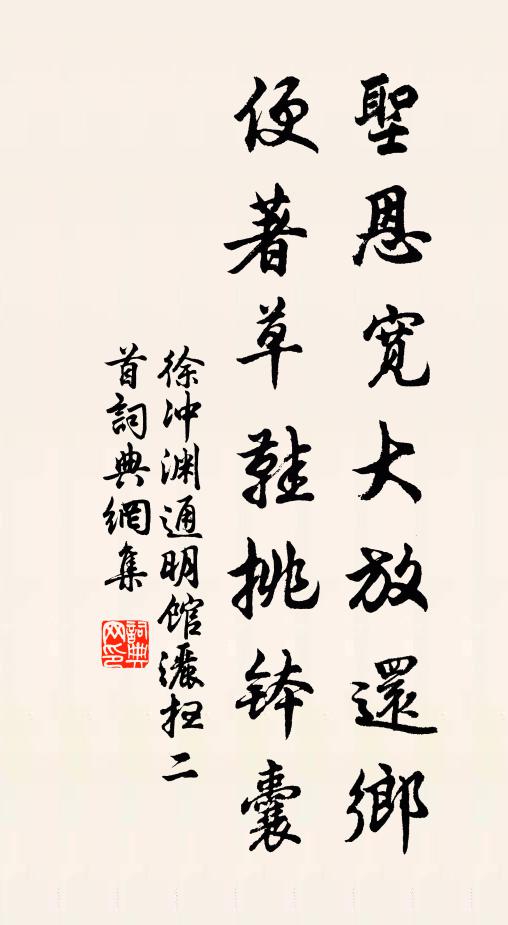 聖恩寬大放還鄉
便著草鞋挑鉢囊
徐沖渊通明館灑扫二
首詞典網集
詞典网印